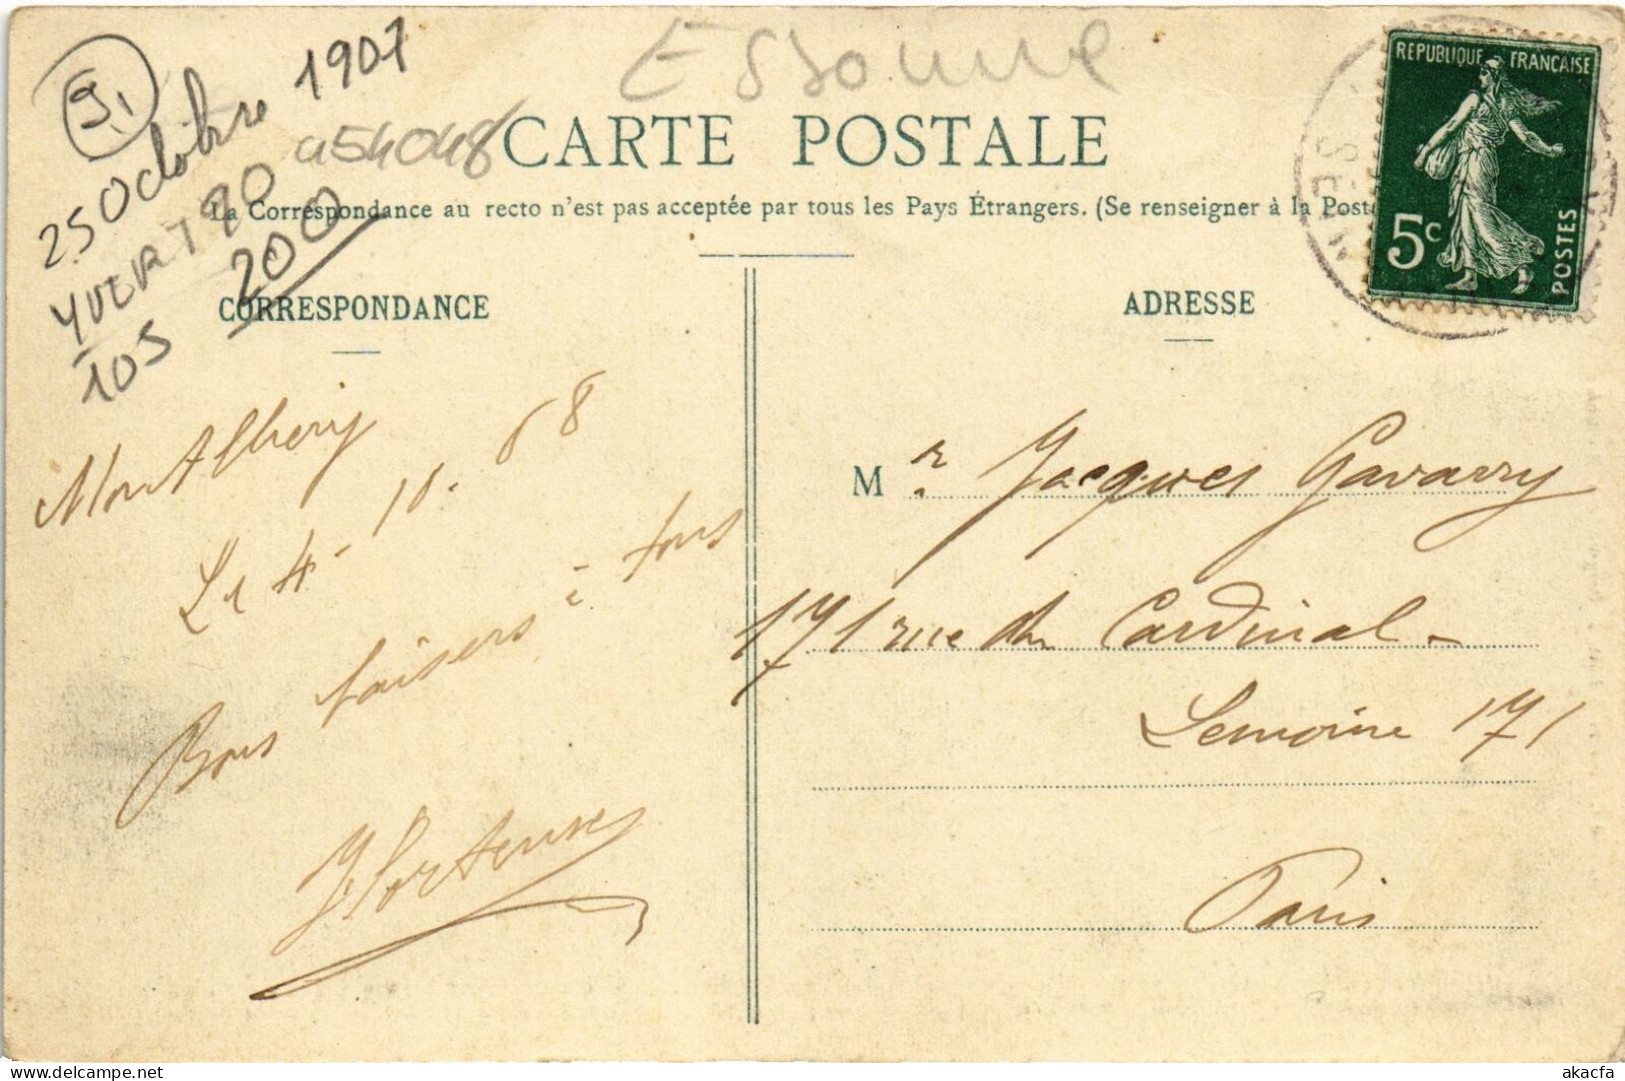 Essonne
91
25 Octobre 1907
a54048
YVERT 90
2000
105
CARTE POSTALE
La Correspondance au recto n'est pas acceptée par tous les Pays Étrangers. (Se renseigner à la Post
REPUBLIQUE FRANÇAISE
5c
POSTES
SEINE
CORRESPONDANCE
ADRESSE
Montlhéry
Le 4 - 10 - 08
Bons baisers à tous
Hortense
Mr Jacques Gavarry
171 rue du Cardinal -
Lemoine 171
Paris
akacfa